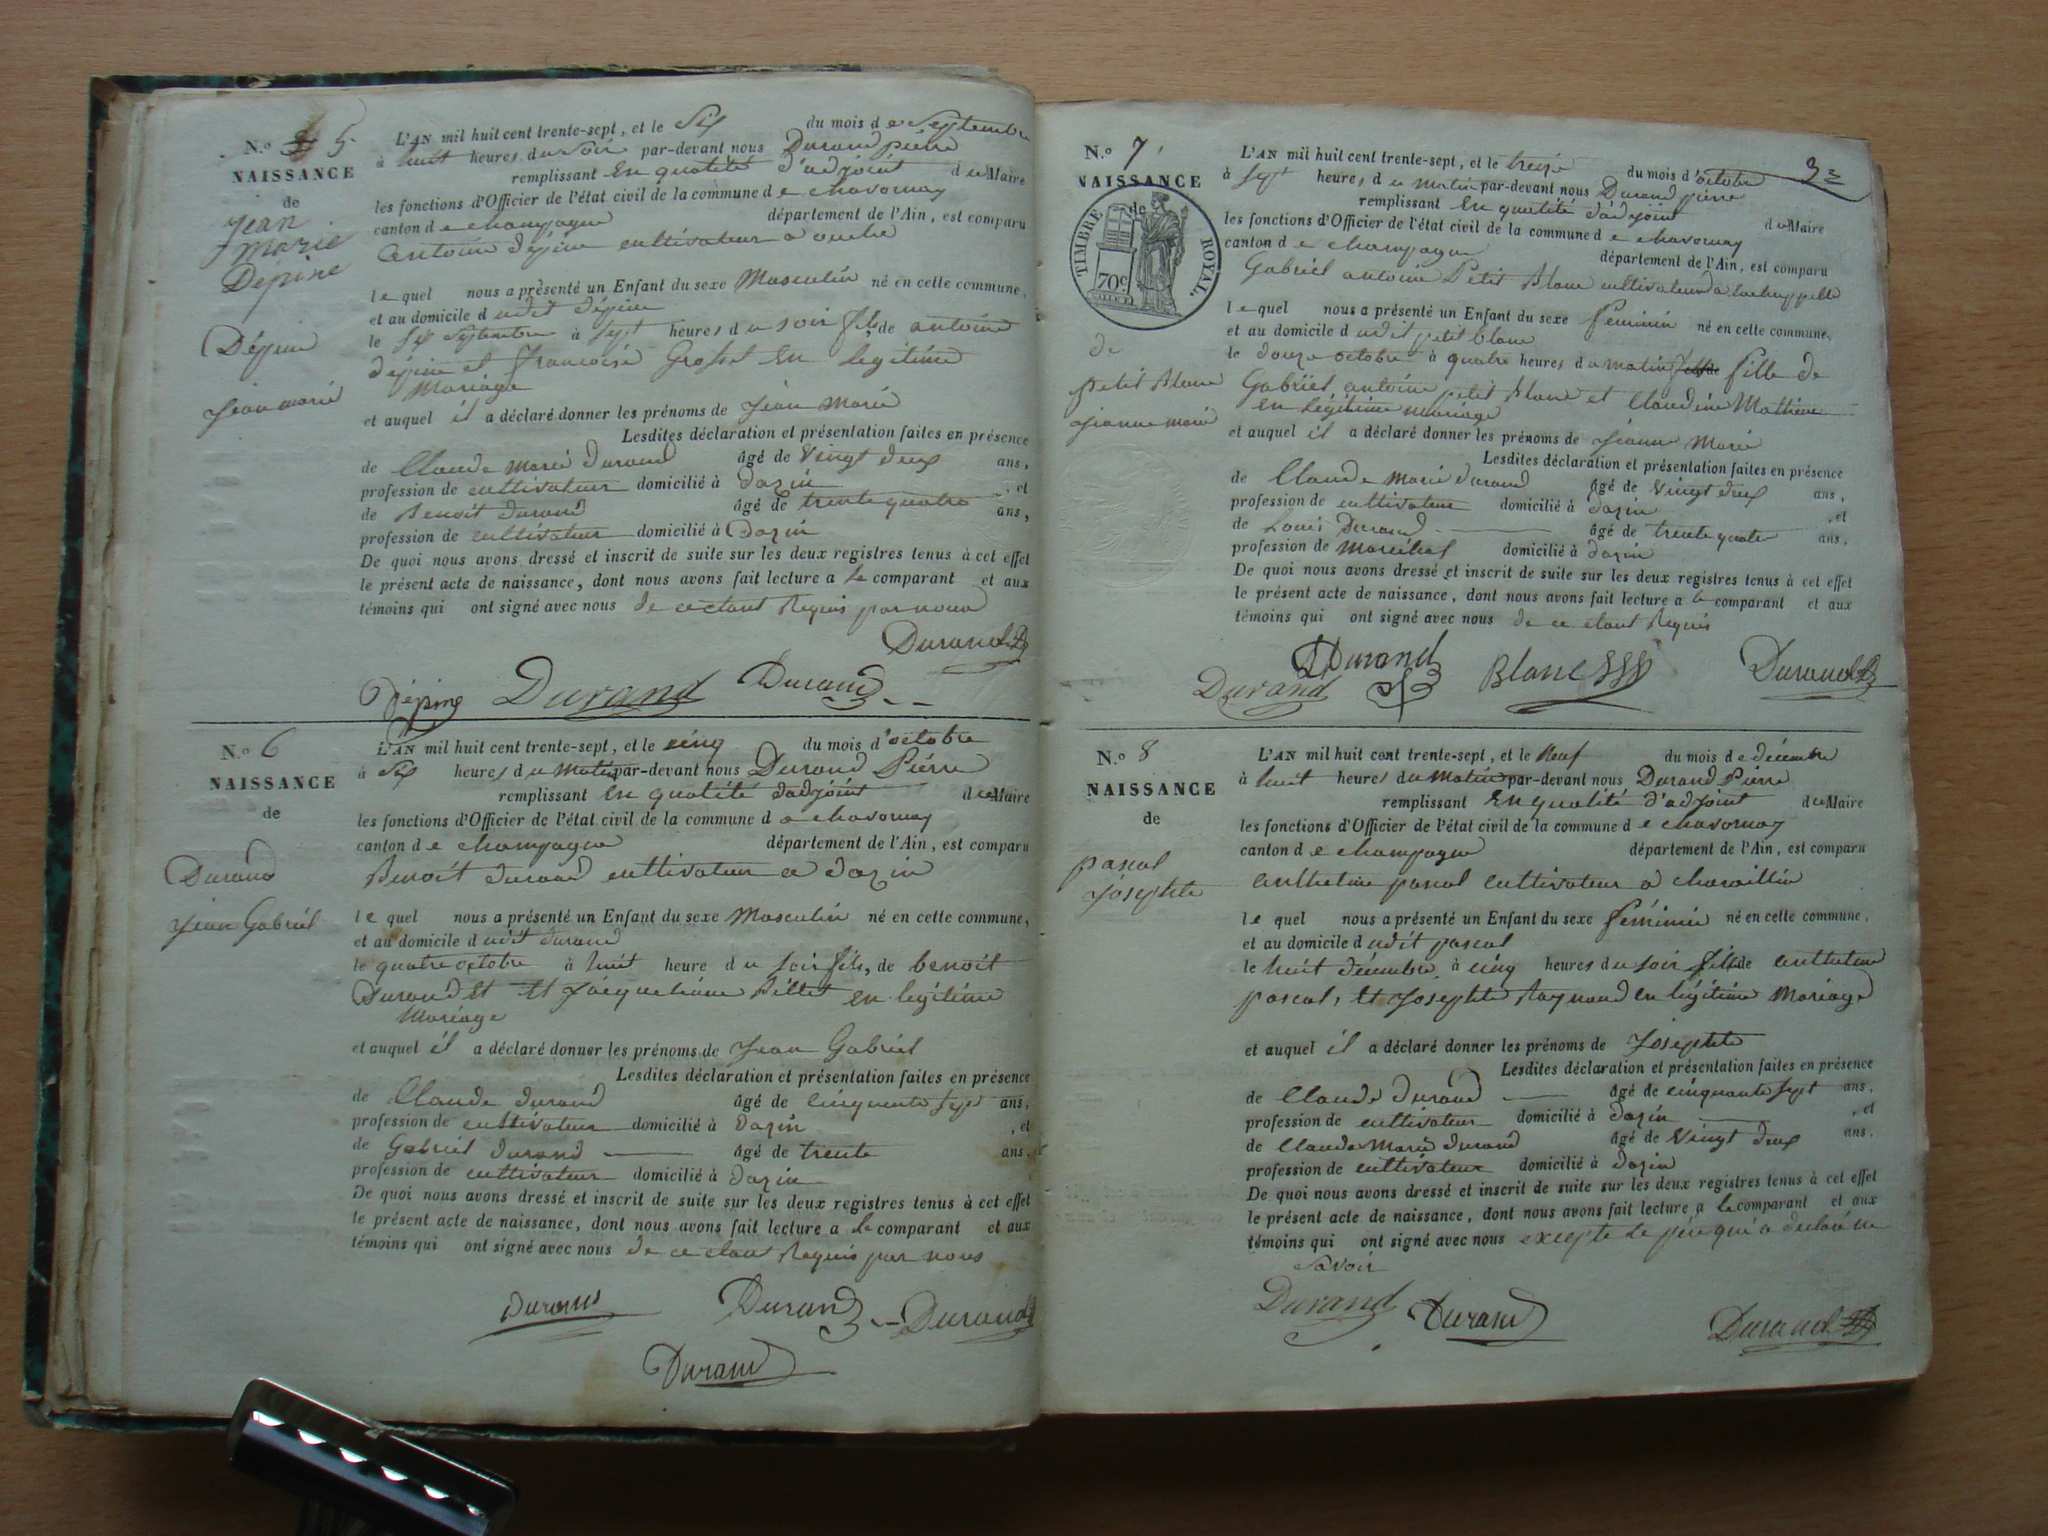 N.o 5
NAISSANCE
de
Jean
Marie
Dépine
Dépine
Jean marie
L'AN mil huit cent trente-sept, et le Six du mois de Septembre
à huit heures du soir par-devant nous Durand pierre
remplissant En qualité d'adjoint du Maire
les fonctions d'Officier de l'état civil de la commune de chavornay
canton de champagne département de l'Ain, est comparu
antoine dépine cultivateur a
lequel nous a présenté un Enfant du sexe Masculin né en cette commune,
et au domicile dudit dépine
le Six Septembre à Sept heures du soir fils de antoine
dépine et francoise Grosset En legitime
Mariage
et auquel il a déclaré donner les prénoms de Jean Marie
Lesdites déclaration et présentation faites en présence
de Claude Marie durand âgé de vingt deux ans,
profession de cultivateur domicilié à dazin , et
de Benoit durand âgé de trente quatre ans,
profession de cultivateur domicilié à Dazin
De quoi nous avons dressé et inscrit de suite sur les deux registres tenus à cet effet
le présent acte de naissance, dont nous avons fait lecture a le comparant et aux
témoins qui ont signé avec nous de ce etant Requis par nous
Durand
Dépine Durand Durand
N.o 6
NAISSANCE
de
Durand
Jean Gabriel
L'AN mil huit cent trente-sept, et le cinq du mois d'octobre
à Six heures du Matin par-devant nous Durand Pierre
remplissant En qualité dadjoint du Maire
les fonctions d'Officier de l'état civil de la commune de chavornay
canton de champagne département de l'Ain, est comparu
Benoit durand cultivateur a dazin
lequel nous a présenté un Enfant du sexe Masculin né en cette commune,
et au domicile dudit durand
le quatre octobre à huit heure du soir fils, de benoit
Durand et et Jacqueline Billet en legitime
Mariage
et auquel il a déclaré donner les prénoms de Jean Gabriel
Lesdites déclaration et présentation faites en présence
de Claude durand âgé de cinquante Sept ans,
profession de cultivateur domicilié à dazin , et
de Gabriel durand âgé de trente ans,
profession de cultivateur domicilié à dazin
De quoi nous avons dressé et inscrit de suite sur les deux registres tenus à cet effet
le présent acte de naissance, dont nous avons fait lecture a le comparant et aux
témoins qui ont signé avec nous de ce etant Requis par nous
Durand Durand Durand
Durand
3
N.o 7
NAISSANCE
de
TIMBRE ROYAL
70c
de
petit Blanc
Jeanne marie
L'AN mil huit cent trente-sept, et le treize du mois d'octobre
à Sept heures du matin par-devant nous Durand pierre
remplissant En qualité d'adjoint du Maire
les fonctions d'Officier de l'état civil de la commune de chavornay
canton de champagne département de l'Ain, est comparu
Gabriel antoine Petit Blanc cultivateur a
lequel nous a présenté un Enfant du sexe feminin né en cette commune,
et au domicile dudit petit blanc
le douze octobre à quatre heures du matin fille de
Gabriel antoine petit Blanc et Claudine Mathieu
en légitime mariage
et auquel il a déclaré donner les prénoms de Jeanne Marie
Lesdites déclaration et présentation faites en présence
de Claude Marie durand âgé de vingt deux ans,
profession de cultivateur domicilié à dazin , et
de Louis Durand âgé de trente quatre ans,
profession de Marechal domicilié à dazin
De quoi nous avons dressé et inscrit de suite sur les deux registres tenus à cet effet
le présent acte de naissance, dont nous avons fait lecture a le comparant et aux
témoins qui ont signé avec nous de ce etant Requis
Durand Durand Blanc Durand
N.o 8
NAISSANCE
de
pascal
Josephte
L'AN mil huit cent trente-sept, et le Neuf du mois de décembre
à huit heures du Matin par-devant nous Durand Pierre
remplissant En qualité d'adjoint du Maire
les fonctions d'Officier de l'état civil de la commune de chavornay
canton de champagne département de l'Ain, est comparu
anthelme pascal cultivateur à charaillin
lequel nous a présenté un Enfant du sexe féminin né en cette commune,
et au domicile dudit pascal
le huit décembre à cinq heures du soir fille de anthelme
pascal, et Josephte Raynaud en légitime Mariage
et auquel il a déclaré donner les prénoms de Josephte
Lesdites déclaration et présentation faites en présence
de Claude durand âgé de cinquante sept ans,
profession de cultivateur domicilié à dazin , et
de Claude Marie durand âgé de vingt deux ans,
profession de cultivateur domicilié à dazin
De quoi nous avons dressé et inscrit de suite sur les deux registres tenus à cet effet
le présent acte de naissance, dont nous avons fait lecture a le comparant et aux
témoins qui ont signé avec nous excepte le père qui a declaré ne
Savoir
Durand Durand Durand